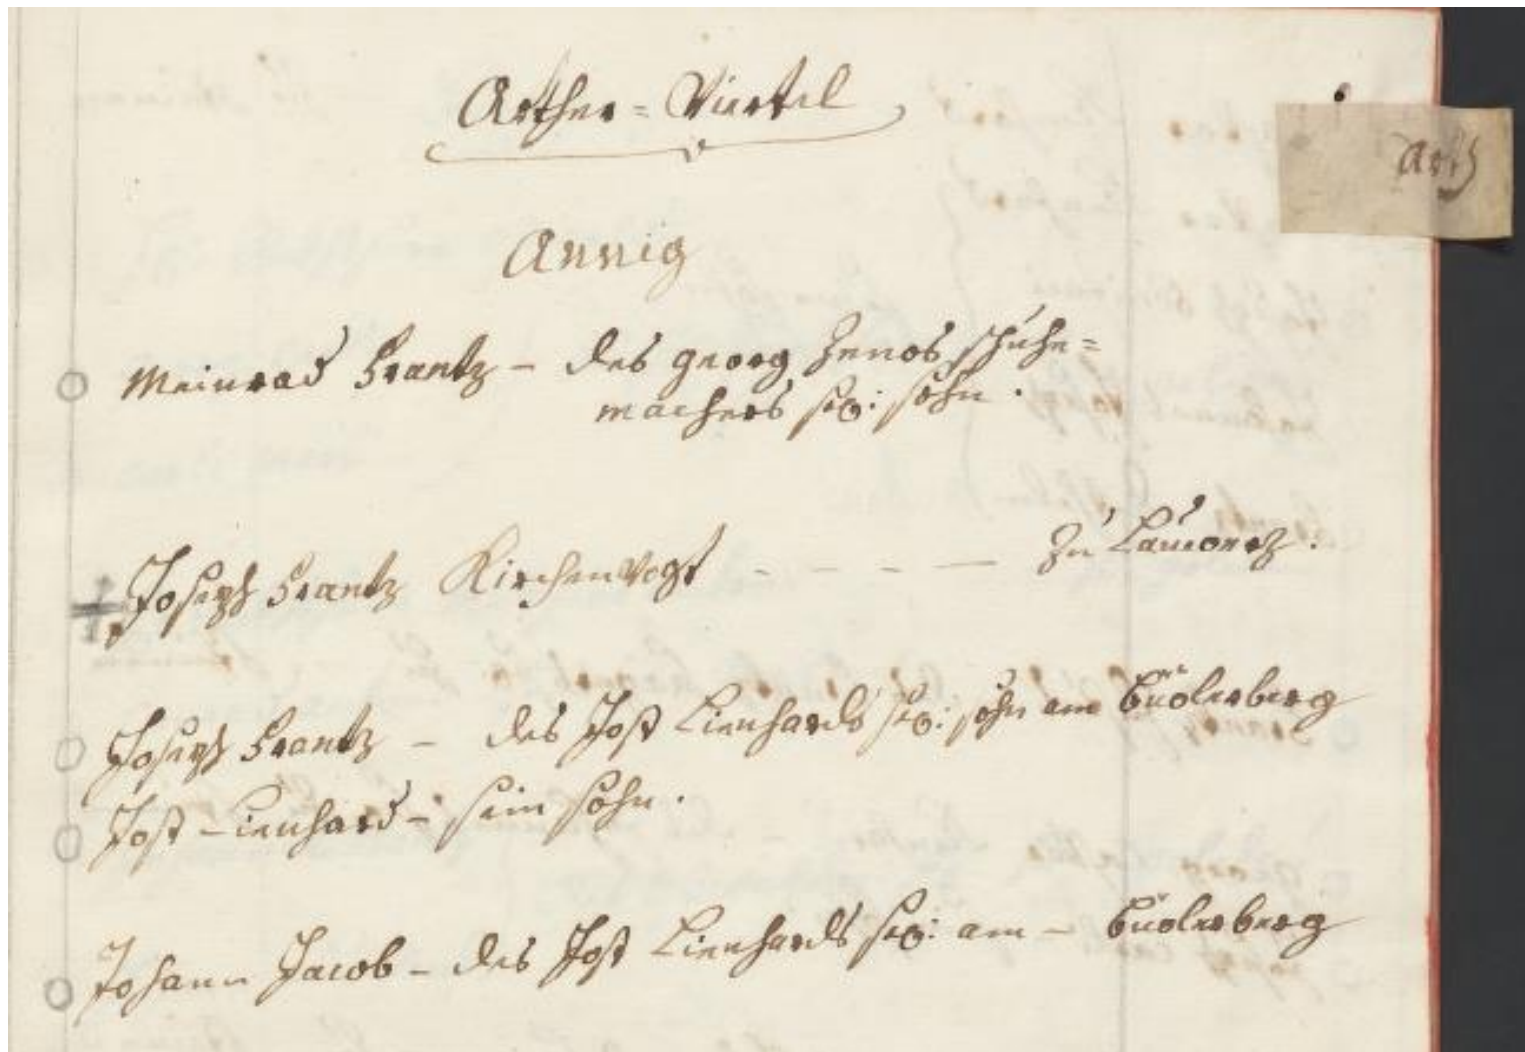 Arther = Viertel
Arth
Annig
Meinrad Frantz - des Georg Zenos schuhe=
machers sel: sohn.
Joseph Frantz Kirchenvogt - - - - zu Lauwertz.
Joseph Frantz - des Jost Lienhards sel: sohn am Buolerberg
Jost Lienhard - sein sohn.
Johann Jacob - des Jost Lienhards sel: am - Buolerberg